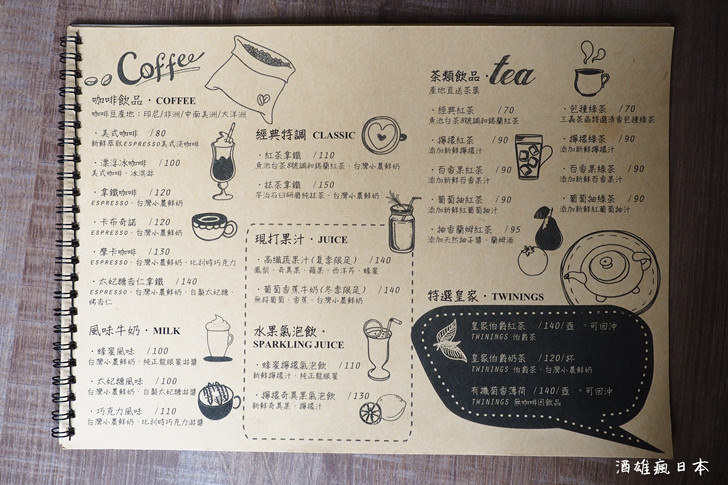 Coffee
咖啡飲品・COFFEE
咖啡豆產地：印尼/非洲/中南美洲/大洋洲
・美式咖啡 /80
新鮮萃取ESPRESSO美式淡咖啡
・漂浮冰咖啡 /100
美式咖啡、冰淇淋
・拿鐵咖啡 /120
ESPRESSO、台灣小農鮮奶
・卡布奇諾 /120
ESPRESSO、台灣小農鮮奶
・摩卡咖啡 /130
ESPRESSO、台灣小農鮮奶、比利時巧克力
・太妃糖杏仁拿鐵 /140
ESPRESSO、台灣小農鮮奶、自製太妃糖、
烤杏仁
風味牛奶・MILK
・蜂蜜風味 /100
台灣小農鮮奶、純正龍眼蜜淋醬
・太妃糖風味 /100
台灣小農鮮奶、自製太妃糖淋醬
・巧克力風味 /110
台灣小農鮮奶、比利時巧克力淋醬
經典特調 CLASSIC
・紅茶拿鐵 /110
魚池台茶8號調和錫蘭紅茶、台灣小農鮮奶
・抹茶拿鐵 /150
宇治石臼研磨純抹茶、台灣小農鮮奶
現打果汁・JUICE
・高纖蔬果汁(夏季限定) /140
鳳梨、奇異果、蘋果、西洋芹、蜂蜜
・葡萄香蕉牛奶(冬季限定) /140
無籽葡萄、香蕉、台灣小農鮮奶
水果氣泡飲・
SPARKLING JUICE
・蜂蜜檸檬氣泡飲 /110
新鮮檸檬汁、純正龍眼蜜
・檸檬奇異果氣泡飲 /130
新鮮奇異果、檸檬汁
茶類飲品・tea
產地直送茶葉
・經典紅茶 /70
魚池台茶8號調和錫蘭紅茶
・檸檬紅茶 /90
添加新鮮檸檬汁
・百香果紅茶 /90
添加新鮮百香果汁
・葡萄柚紅茶 /90
添加新鮮紅葡萄柚汁
・柚香蘭姆紅茶 /95
添加天然柚子醬、蘭姆酒
・包種綠茶 /70
・檸檬綠茶 /90
添加新鮮檸檬汁
・百香果綠茶 /90
添加新鮮百香果汁
・葡萄柚綠茶 /90
添加新鮮紅葡萄柚汁
特選皇家・TWININGS
皇家伯爵紅茶 /140/壺 。可回沖
TWININGS 伯爵茶
皇家伯爵奶茶 /120/杯
TWININGS 伯爵茶、台灣小農鮮奶
有機菊香薄荷 /140/壺 。可回沖
TWININGS 無咖啡因飲品
酒雄瘋日本